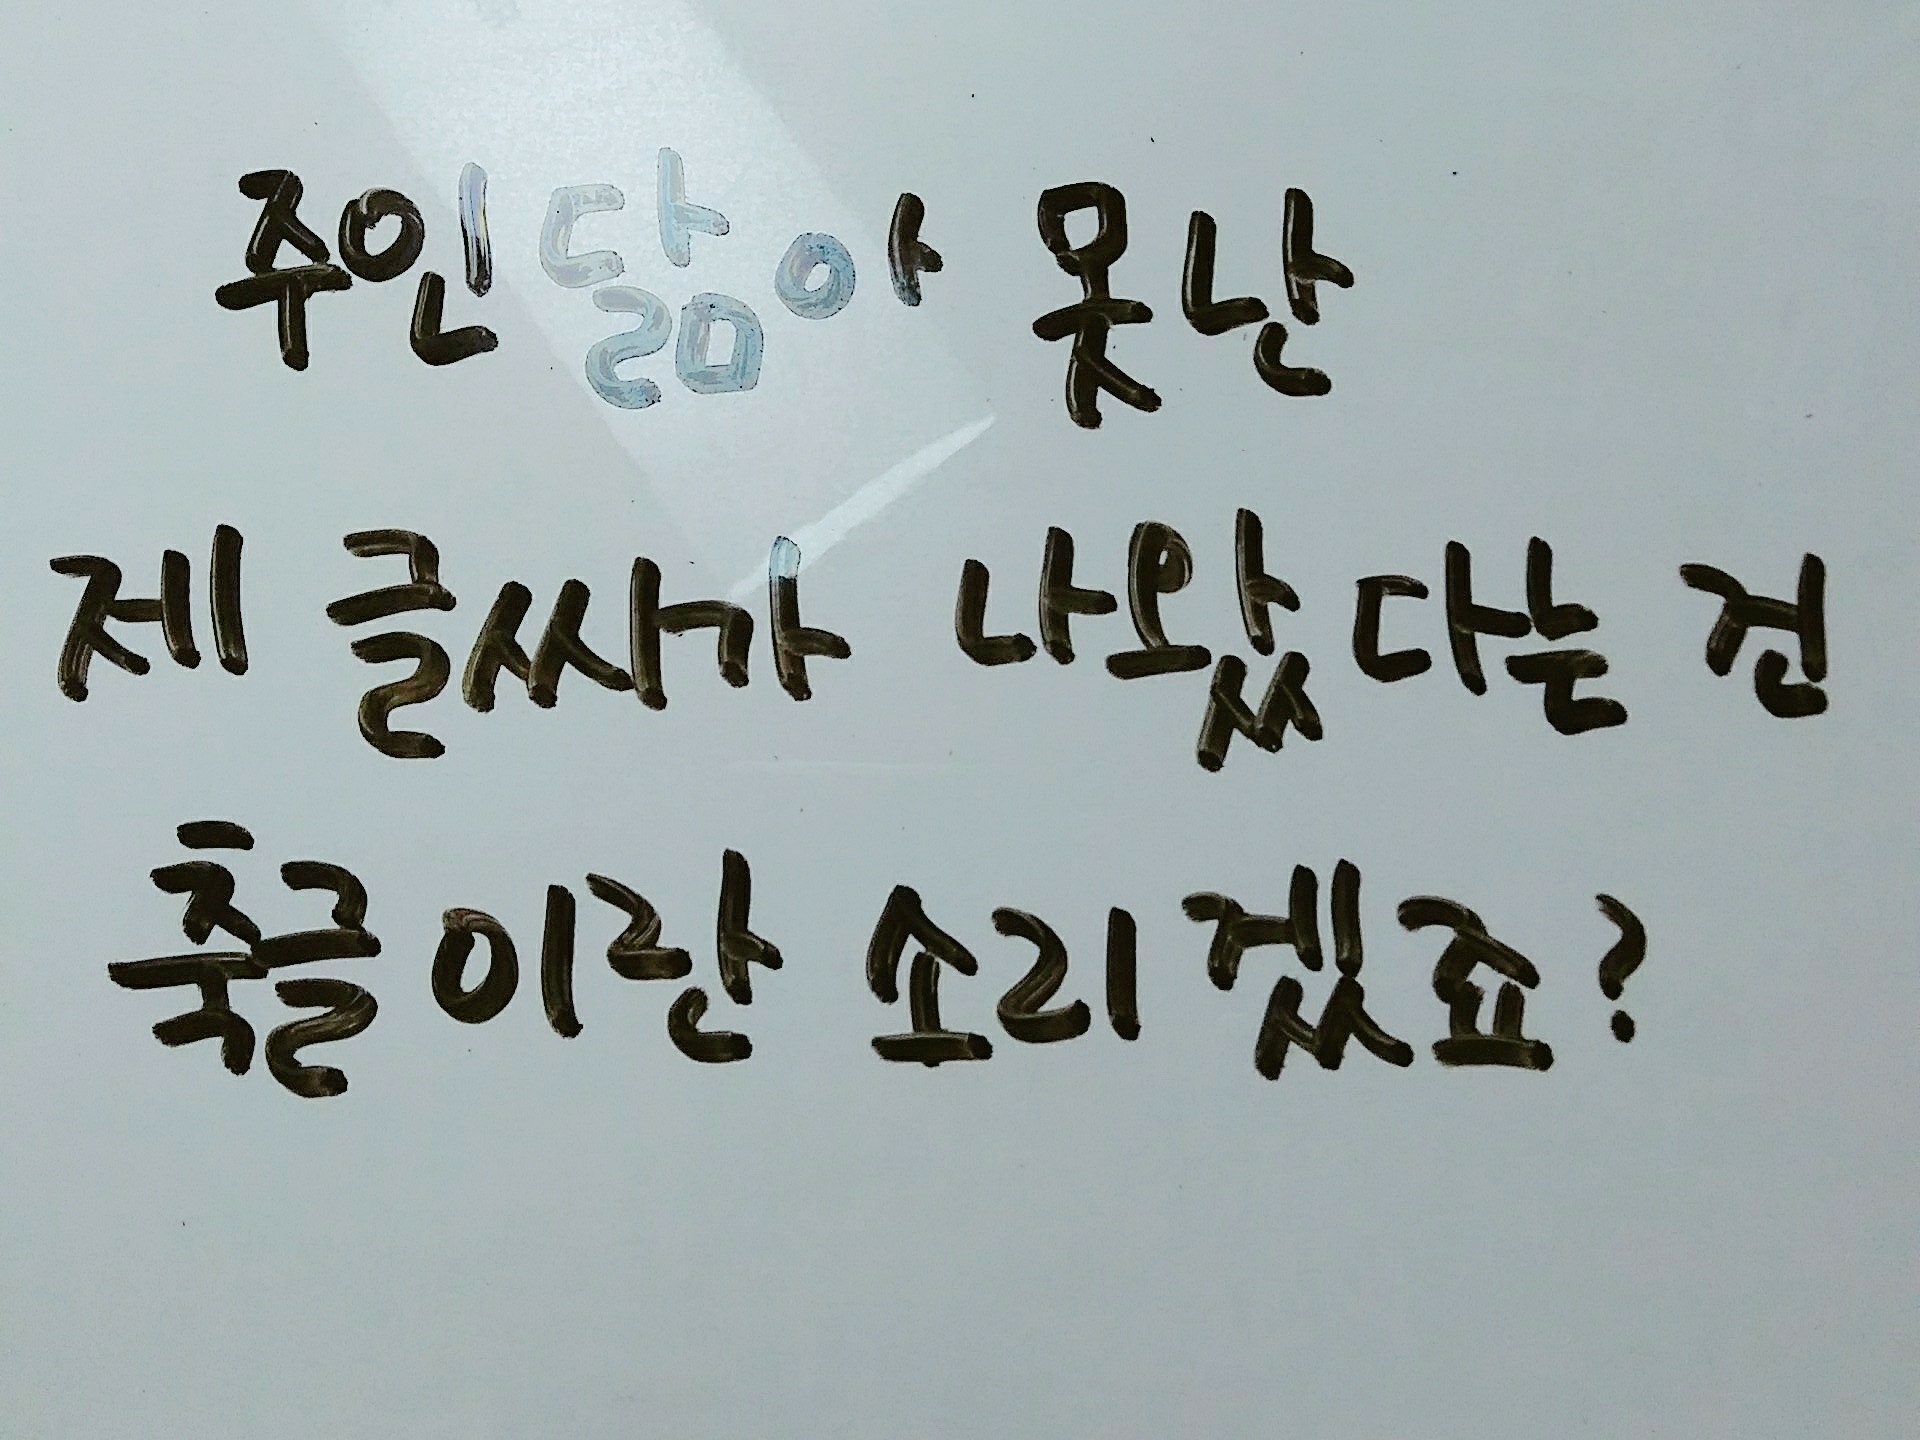 주인 닮아 못난
제 글씨가 나왔다는 건
축글이란 소리겠죠?